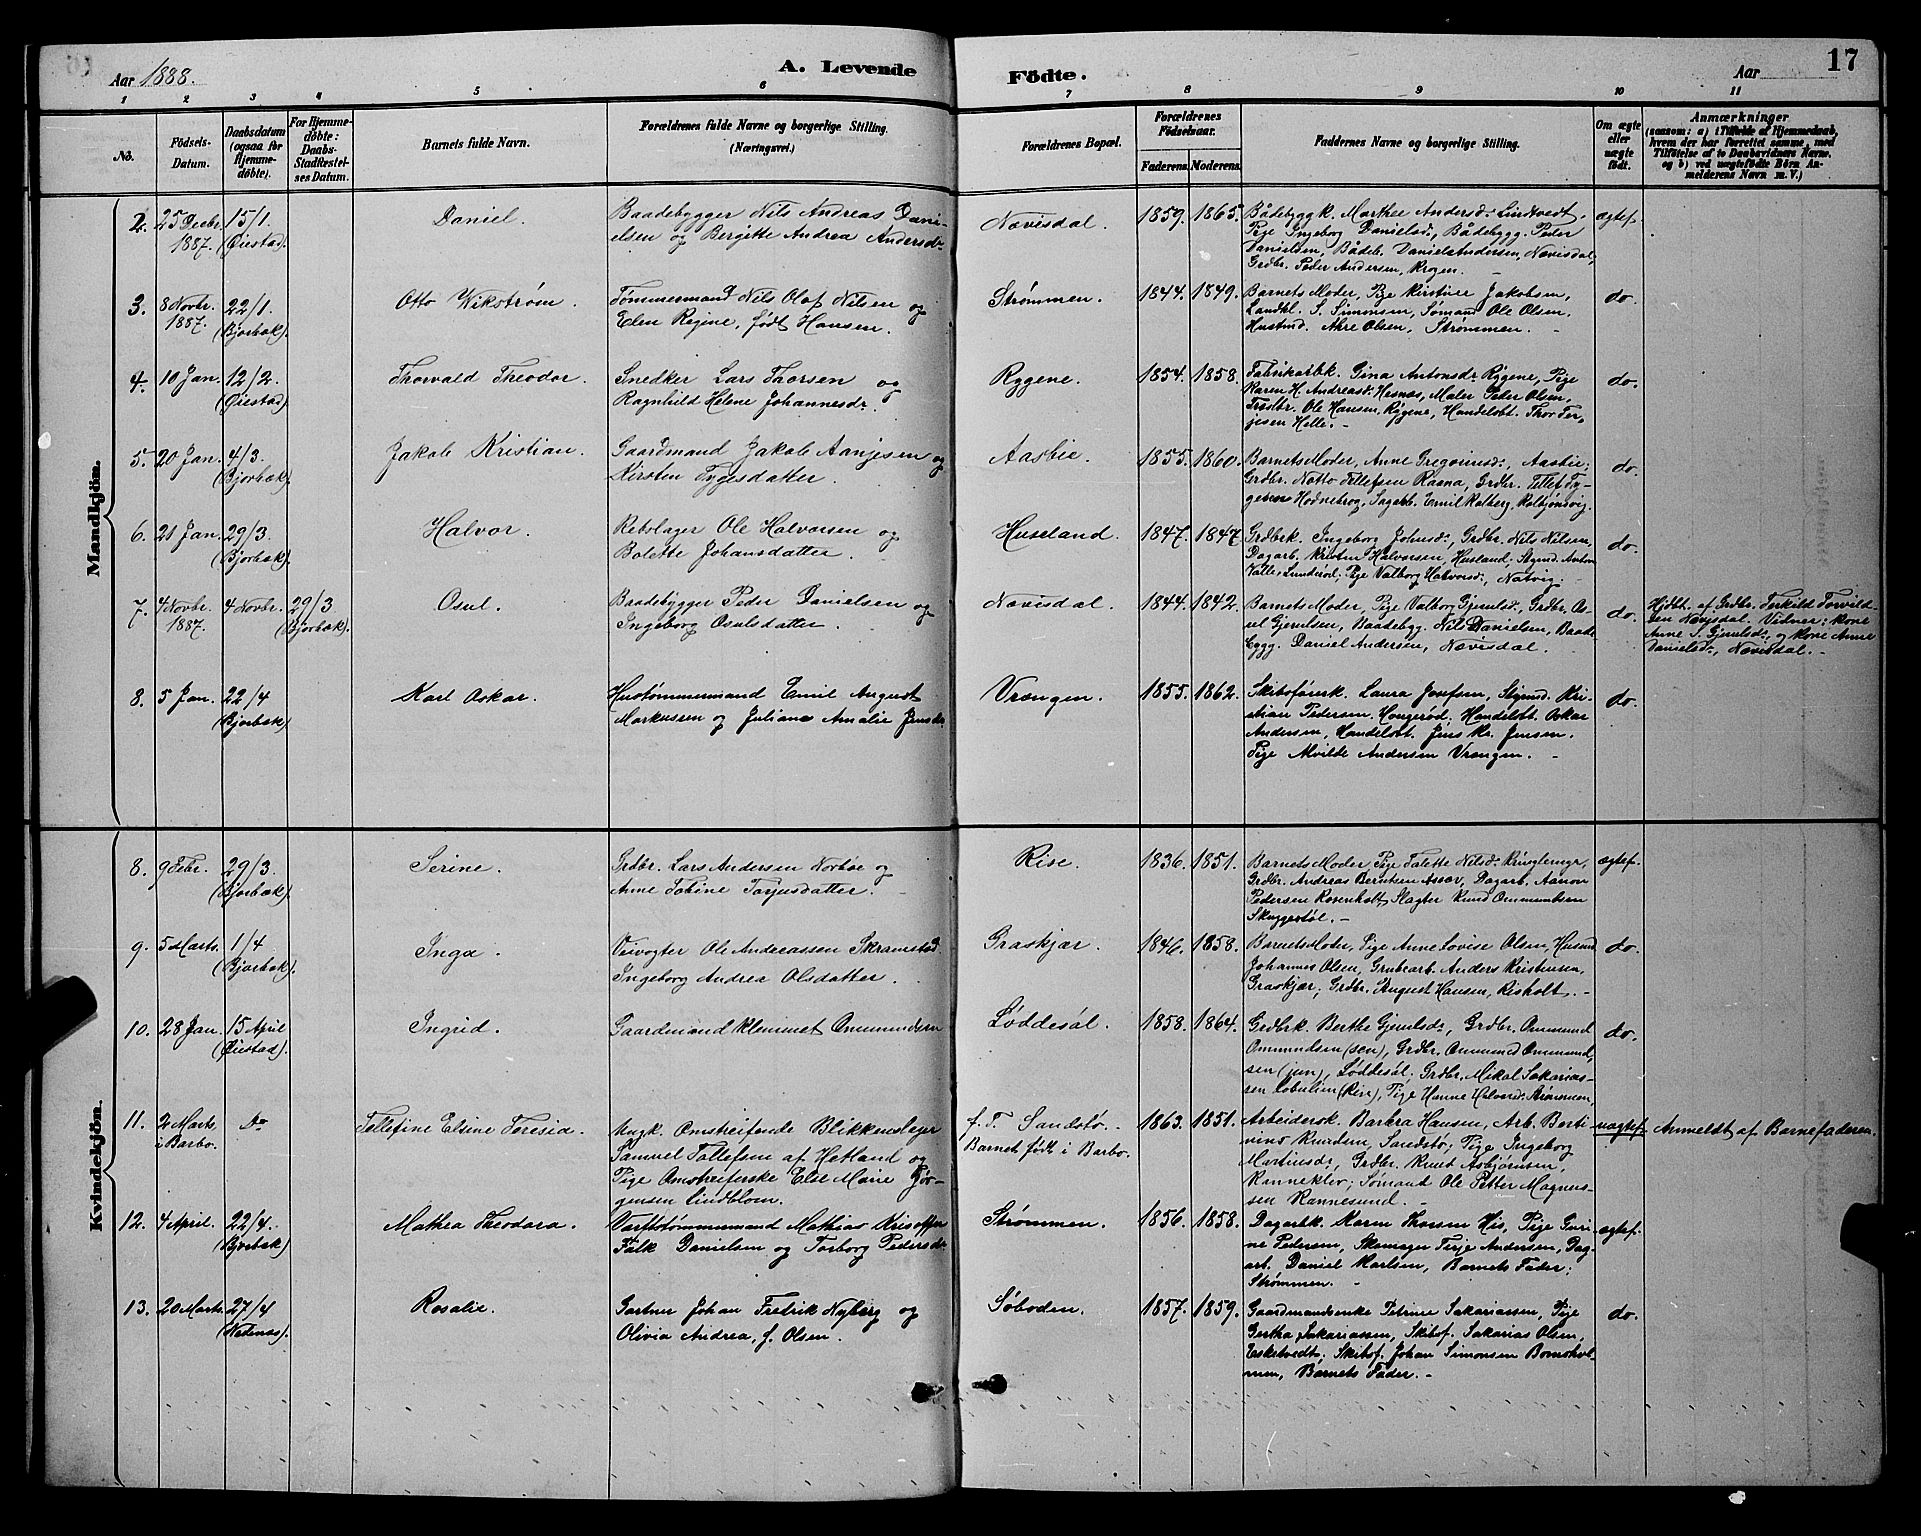 17
Aar 1888.
A. Levende
Födte.
Aar
1 2 3 4 5 6 7 8 9 10 11
No.
Födsels-
Datum.
Daabsdatum
(ogsaa for
Hjemme-
döbte).
For Hjemme-
döbte:
Daabs-
Stadfæstel-
ses Datum.
Barnets fulde Navn.
Forældrenes fulde Navne og borgerlige Stilling.
(Næringsvei.)
Forældrenes Bopæl.
Forældrenes
Födselsaar.
Faderens. Moderens.
Faddernes Navne og borgerlige Stilling.
Om ægte
eller
uægte
födt.
Anmærkninger
(saasom: a) i Tilfælde af Hjemmedaab,
hvem der har forrettet samme, med
Tilföielse af to Daabsvidners Navne,
og b) ved uægtefödte Börn An-
melderens Navn m. V.)
Mandkjön.
2. 25 Decbr. 1887. 15/1. (Øiestad) Daniel.
Baadebygger Nils Andreas Dani-
elsen og Bergitte Andrea Andersdr.
Nævisdal. 1859. 1865.
Bådebyggk. Marthe Andersd. Lindtvedt.
Pige Ingeborg Danielsd., Bådebygg. Peder
Danielsen, Bådeb. Daniel Andersen, Nævisdal,
Grdbr. Peder Andersen, Krogen. -
ægtef.
3. 8 Novbr. 1887. 22/1. (Bjorbæk). Otto Wikstrøm.
Tømmermand Nils Olaf Nilsen og
Elen Regine, født Hansen.
Strømmen. 1844. 1849.
Barnets Moder, Pige Kirstine Jakobsen,
Landhl. S. Simonsen, Sømand Ole Olsen,
Hustmd. Åkre Olsen, Strømmen. -
do.
4. 10 Jan. 12/2. (Øiestad). Thorvald Theodor.
Snedker Lars Thorsen og
Ragnhild Helene Johannesdr.
Rygene. 1854. 1858.
Fabrikarbk. Gina Antonsdr. Rygene, Pige
Karen H. Andreasd. Hesnæs, Maler Peder Olsen,
Ole Hansen, Rygene, Handelsbt. Thor Ter-
jesen Helle. -
do.
5. 20 Jan. 4/3. (Bjorbæk). Jakob Kristian.
Gaardmand Jakob Aanjesen og
Kirsten Tygesdatter.
Aasbie. 1855. 1860.
Barnets Moder, Anne Gregoriusd., Aasbie;
Grdbr. Notto Tellefsen Rasna, Grdbr. Tellef Ty-
gesen Hodnebrog, Sagarb. Emil Kolberg, Kolbjønsvig.
do.
6. 21 Jan. 29/3. (Bjorbæk). Halvor.
Rebslager Ole Halvorsen og
Bolette Johansdatter.
Huseland. 1847. 1847.
Grdbrk. Ingeborg Johnsd., Grdbr. Nils Nilsen,
Dagarb. Kristen Halvorsen, Husland, Styrmd. Anton
Valle, Lunderød, Pige Valborg Halvorsd., Natvig. -
do.
7. 4 Novbr. 1887. 4 Novbr. 29/3. (Bjorbæk). Osul.
Baadebygger Peder Danielsen og
Ingeborg Osulsdatter.
Nævisdal. 1844. 1842.
Barnets Moder, Pige Valborg Gjerulsd., Grdbr. Os-
ul Gjerulsen, Baadebygg. Nils Danielsen, Baade-
bygg. Daniel Andersen, Nævisdal.
do.
Hjdbt. af Grdbr. Terkild Torvild-
sen Nævisdal. Vidner: Kone
Anne S. Gjerulsd. og Kone Anne
Danielsd., Nævisdal. -
8. 5 Jan. 22/4 (Bjorbæk) Karl Oskar.
Hustømmermand Emil August
Markussen og Juliane Amalie Jensdr.
Vrængen. 1855. 1862.
Skibsførerk. Laura Josefsen, Styrmd. Kri-
stian Pedersen, Hougerød, Handelsbt. Oskar
Andersen, Handelsbt. Jens Kr. Jensen.
Pige Alvilde Andersen Vrængen. -
do.
Kvindekjön.
8. 9 Febr. 29/3. (Bjorbæk) Serine.
Grdbr. Lars Andersen Norbøe og
Anne Tobine Tarjusdatter.
Rise. 1836. 1851.
Barnets Moder, Pige Talette Nilsd. Kringlemyr,
Grdbr. Andreas Berntsen Assev, Dagarb. Aanon
Pedersen Rosenholt, Slagter Knud Ommundsen
Skuggestøl. -
ægtef.
9. 5 Marts. 1/4 (Bjorbæk). Inga.
Veivogter Ole Andreassen Skramstad.
Ingeborg Andrea Olsdatter.
Graskjær. 1846. 1858.
Barnets Moder, Pige Anne Lovise Olsen, Husmd
Johannes Olsen, Grubearb. Anders Kristensen,
Graskjær; Grdbr. August Hansen, Risholt. -
do.
10. 28 Jan. 15 April (Øiestad). Ingrid.
Gaardmand Klemmet Ommundsen
Løddesøl. 1858. 1864.
Grdbrk. Berthe Gjerulsd., Grdbr. Ommund
Ommundsen (sen), Grdbr. Ommund Ommund-
sen (jun), Løddesøl. Grdbr. Mikal Sakarias-
sen Lobulien (Rise), Pige Hanne Halvorsd. Strømmen,
do.
11. 2 Marts. i Barbo. do Tellefine Elsine Teresia.
Ungk. Omstreifende Blikkenslager
Samuel Tallefsen af Hetland og
Pige Omstreiferske Else Marie Jør-
gensen Lindblom.
f. T. Sandstø. -
Barnet født i Barbo.
1863. 1851.
Arbeidersk. Barbra Hansen, Arb. Berti-
nius Knudsen, Sandstø; Pige Ingeborg
Martinsdr., Grdbr. Knud Asbjørnsen,
Rannekleiv; Sømand Ole Petter Magnus-
sen Rannesund. -
uægtef. Anmeldt af Barnefaderen.
12. 4 April. 22/4. (Bjorbæk) Mathea Theodora.
Værftstømmermand Mathias Kristoffer
Falk Danielsen og Torborg Pedersdr.
Strømmen. 1856. 1858.
Dagarbk. Karen Thorsen His, Pige Guri-
ne Pedersen, Skomager Terje Andersen, Dag-
arb. Daniel Karlsen, Barnets Fader;
Strømmen. -
ægtef.
13. 20 Marts. 27/4 (Nedenæs). Rosalie.
Gartner Johan Fredrik Nyberg og
Olivia Andrea, f. Olsen.
Søboden. 1857. 1859.
Gaardmandsenke Petrine Sakariassen, Pige
Gertha Sakariassen, Skibsf. Sakarias Olsen,
Eskelvedt; Skibsf. Johan Simonsen Bomshol-
men, Barnets Fader. -
do.